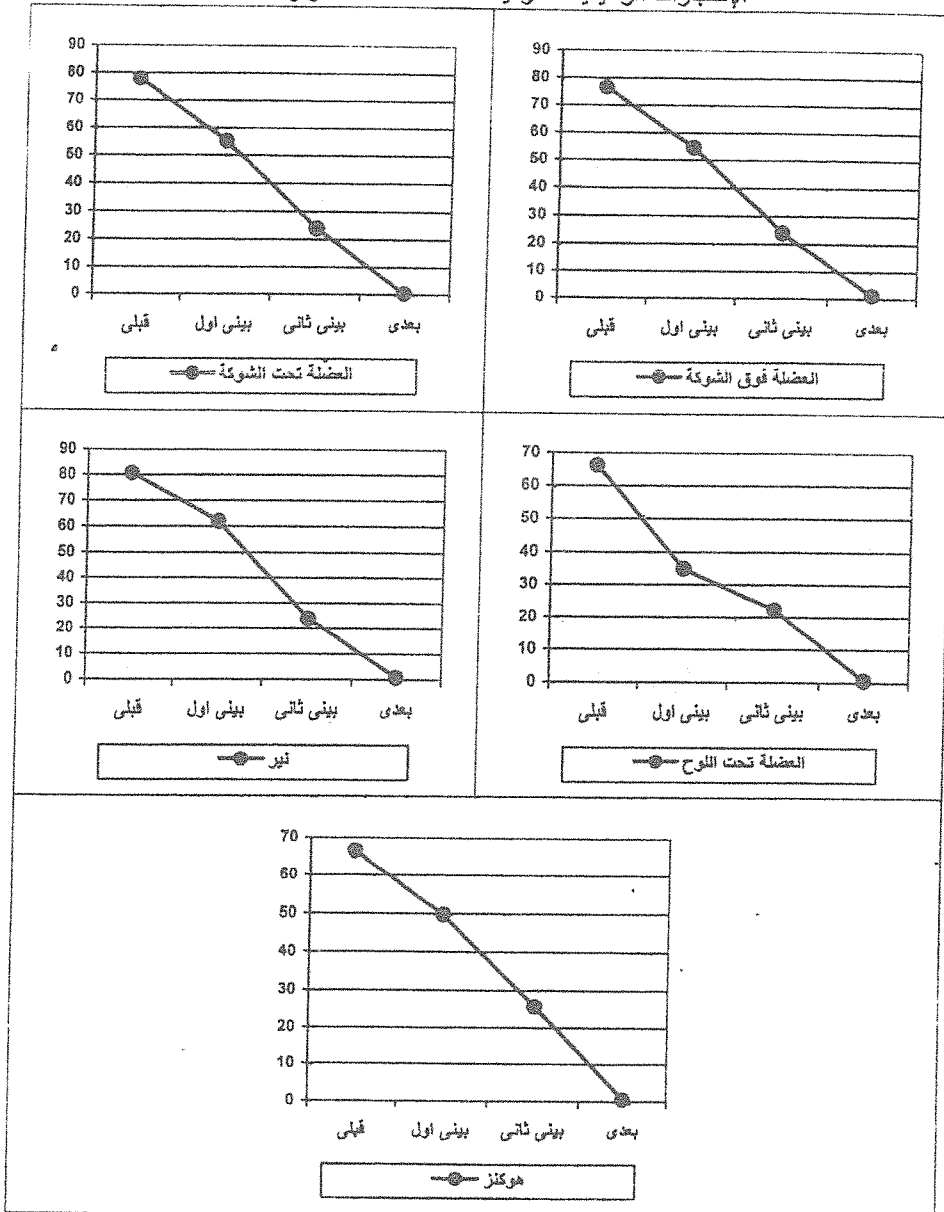 90
80
70
60
50
40
30
20
10
0
قبلى بينى اول بينى ثانى بعدى
العضلة تحت الشوكة
90
80
70
60
50
40
30
20
10
0
قبلى بينى اول بينى ثانى بعدى
العضلة فوق الشوكة
90
80
70
60
50
40
30
20
10
0
قبلى بينى اول بينى ثانى بعدى
نير
70
60
50
40
30
20
10
0
قبلى بينى اول بينى ثانى بعدى
العضلة تحت اللوح
70
60
50
40
30
20
10
0
قبلى بينى اول بينى ثانى بعدى
هوكنز